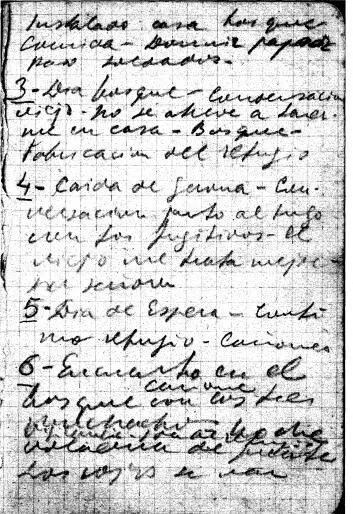 Instalado casa bosque
Comida - Dormir pajar
Paso soldados -
3 - Dia bosque - Conversacion
viejo - no se atreve a tener
me en casa - Bosque -
Fabricacion del refugio
4 - Caida de Gerona - Con
versacion junto al fuego
con los fugitivos - el
viejo me trata mejor -
su señora
5 - Dia de Espera - Conti
nuo refugio - Cañones
6 - Encuentro en el
bosque con los tres
noche
voladura de puente
Los rojos se van